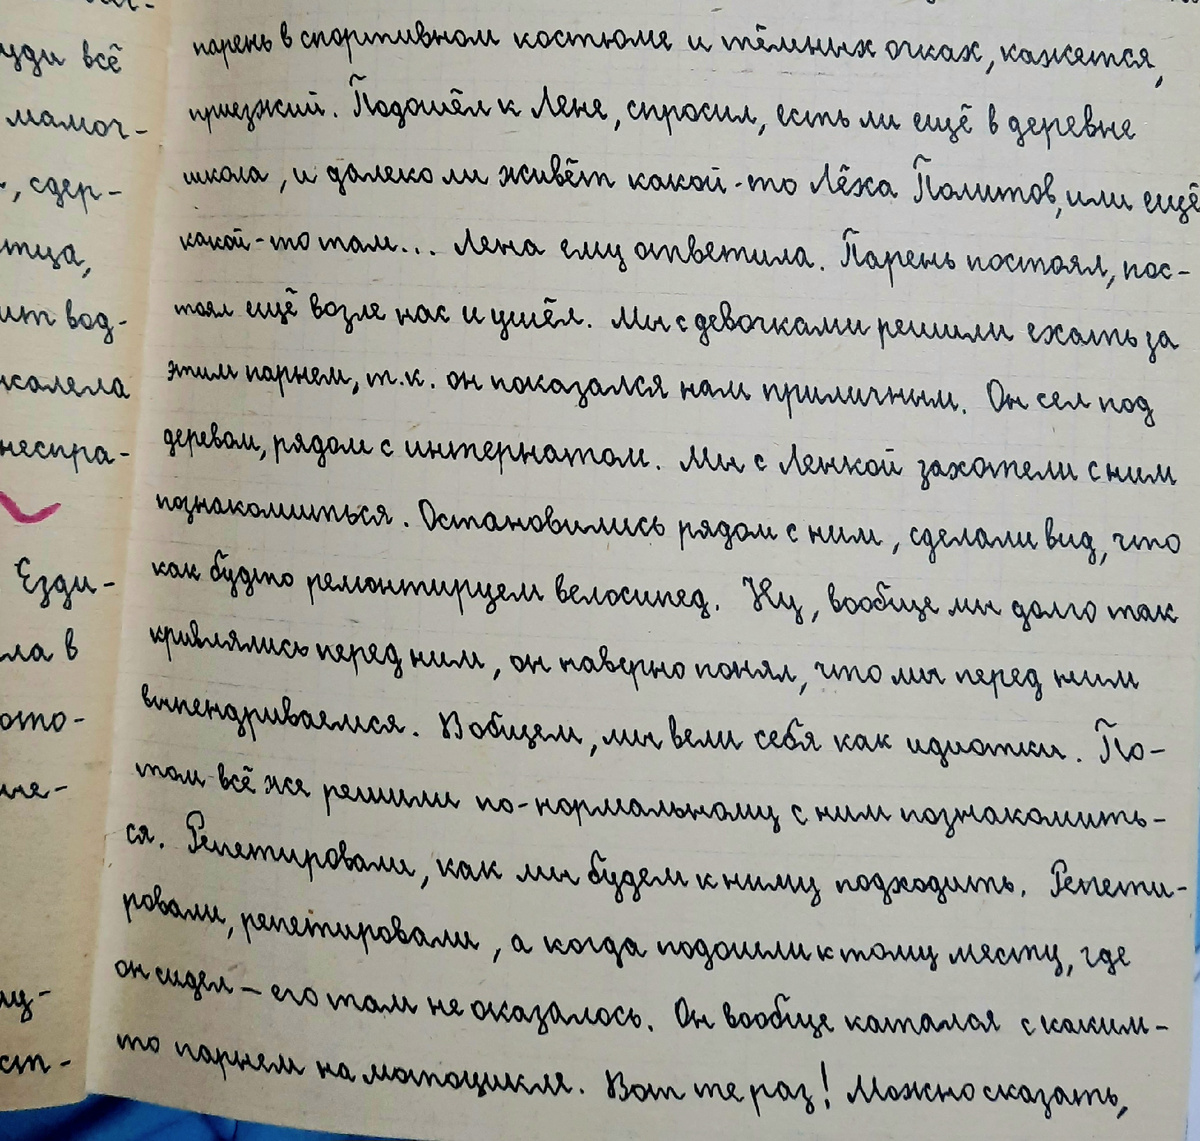 уди всё
мамоч-
, сдер-
тца,
ит вод-
жалела
неспра-
Езди-
ла в
ото-
не-
му-
ст-
парень в спортивном костюме и тёмных очках, кажется,
приезжий. Подошёл к Лене, спросил, есть ли ещё в деревне
школа, и далеко ли живёт какой-то Лёха Политов, или ещё
какой-то там... Лена ему ответила. Парень постоял, пос-
тоял ещё возле нас и ушёл. Мы с девочками решили ехать за
этим парнем, т.к. он показался нам приличным. Он сел под
деревом, рядом с интернатом. Мы с Ленкой захотели с ним
познакомиться. Остановились рядом с ним, сделали вид, что
как будто ремонтируем велосипед. Ну, вообще мы долго так
кривлялись перед ним, он наверно понял, что мы перед ним
выпендриваемся. Вобщем, мы вели себя как идиотки. По-
том всё же решили по-нормальному с ним познакомить-
ся. Репетировали, как мы будем к ниму подходить. Репети-
ровали, репетировали, а когда подошли к тому месту, где
он сидел – его там не оказалось. Он вообще катался с каким-
то парнем на мотоцикле. Вот те раз! Можно сказать,